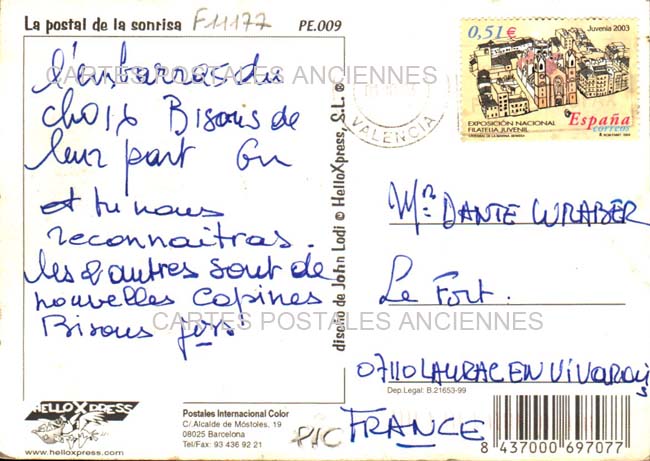 La postal de la sonrisa F11177 PE.009
l'embarras du
choix Bisous de
leur part
et tu nous
reconnaitras.
les 2 autres sont de
nouvelles copines
Bisous
CARTES POSTALES ANCIENNES
CARTES POSTALES ANCIENNES
diseño de John Lodi © HelloXpress, S.L. ®
VALENCIA
0,51€ Juvenia 2003
EXPOSICIÓN NACIONAL
FILATELIA JUVENIL
España
correos
Mr DANTE WRABER
Le Fort.
07110 LAURAC EN Vivarais
FRANCE
Dep.Legal: B.21653-99
HELLOXPRESS
www.helloxpress.com
Postales Internacional Color
C/.Alcalde de Móstoles, 19
08025 Barcelona
Tel/Fax: 93 436 92 21
P/C
8 437000 697077